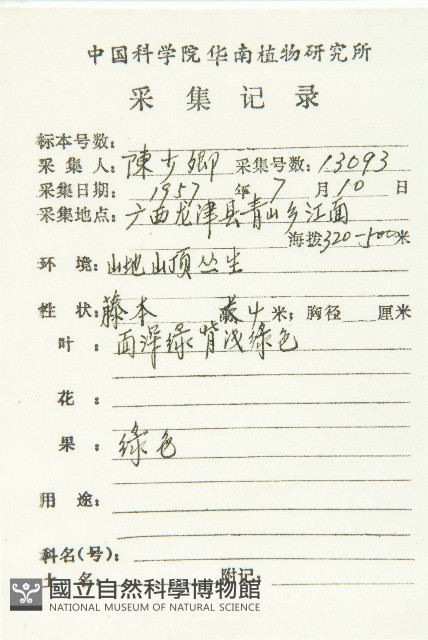 中国科学院华南植物研究所
采集记录
标本号数:
采集人: 陳少卿 采集号数: 13093
采集日期: 1957 年 7 月 10 日
采集地点: 广西龙津县青山乡江面
海拨 320-500 米
环境: 山地山顶丛生
性状: 藤本 高 4 米; 胸径 厘米
叶: 面深绿背浅绿色
花:
果: 绿色
用途:
科名(号):
土名: 附记:
國立自然科學博物館
NATIONAL MUSEUM OF NATURAL SCIENCE